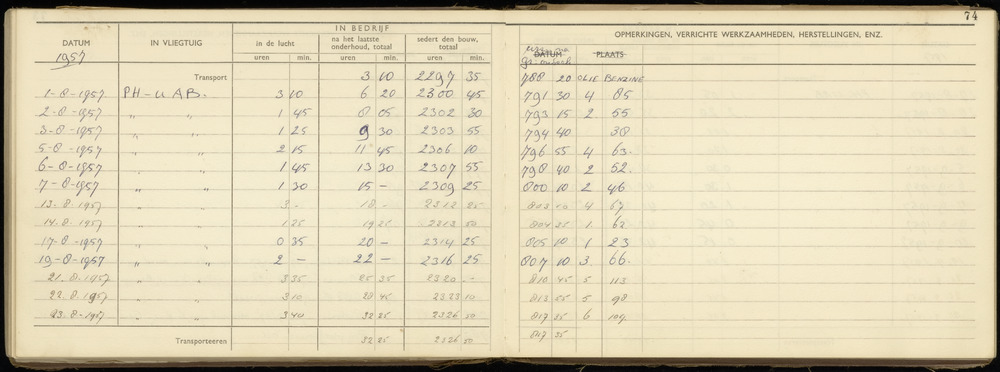 74
IN BEDRIJF
DATUM IN VLIEGTUIG in de lucht na het laatste onderhoud, totaal sedert den bouw, totaal OPMERKINGEN, VERRICHTE WERKZAAMHEDEN, HERSTELLINGEN, ENZ.
1957 uren min. uren min. uren min. DATUM PLAATS
Transport 3 10 2297 35 788 20 OLIE BENZINE
1-8-1957 PH-UAB. 3 10 6 20 2300 45 791 30 4 85
2-8-1957 " " 1 45 8 05 2302 30 793 15 2 55
3-8-1957 " " 1 25 9 30 2303 55 794 40 38
5-8-1957 " " 2 15 11 45 2306 10 796 55 4 63.
6-8-1957 " " 1 45 13 30 2307 55 798 40 2 52.
7-8-1957 " " 1 30 15 - 2309 25 800 10 2 46
13-8-1957 " " 3 - 18 - 2312 25 803 10 4 67
14-8-1957 " " 1 25 19 25 2313 50 804 35 1 62
17-8-1957 " " 0 35 20 - 2314 25 805 10 1 23
19-8-1957 " " 2 - 22 - 2316 25 807 10 3. 66.
21.8.1957 " " 3 35 25 35 2320 - 810 45 5 113
22.8.1957 " " 3 10 28 45 2323 10 813 55 5 98
23.8-1957 " " 3 40 32 25 2326 50 817 35 6 109
Transporteeren 32 25 2326 50 817 35